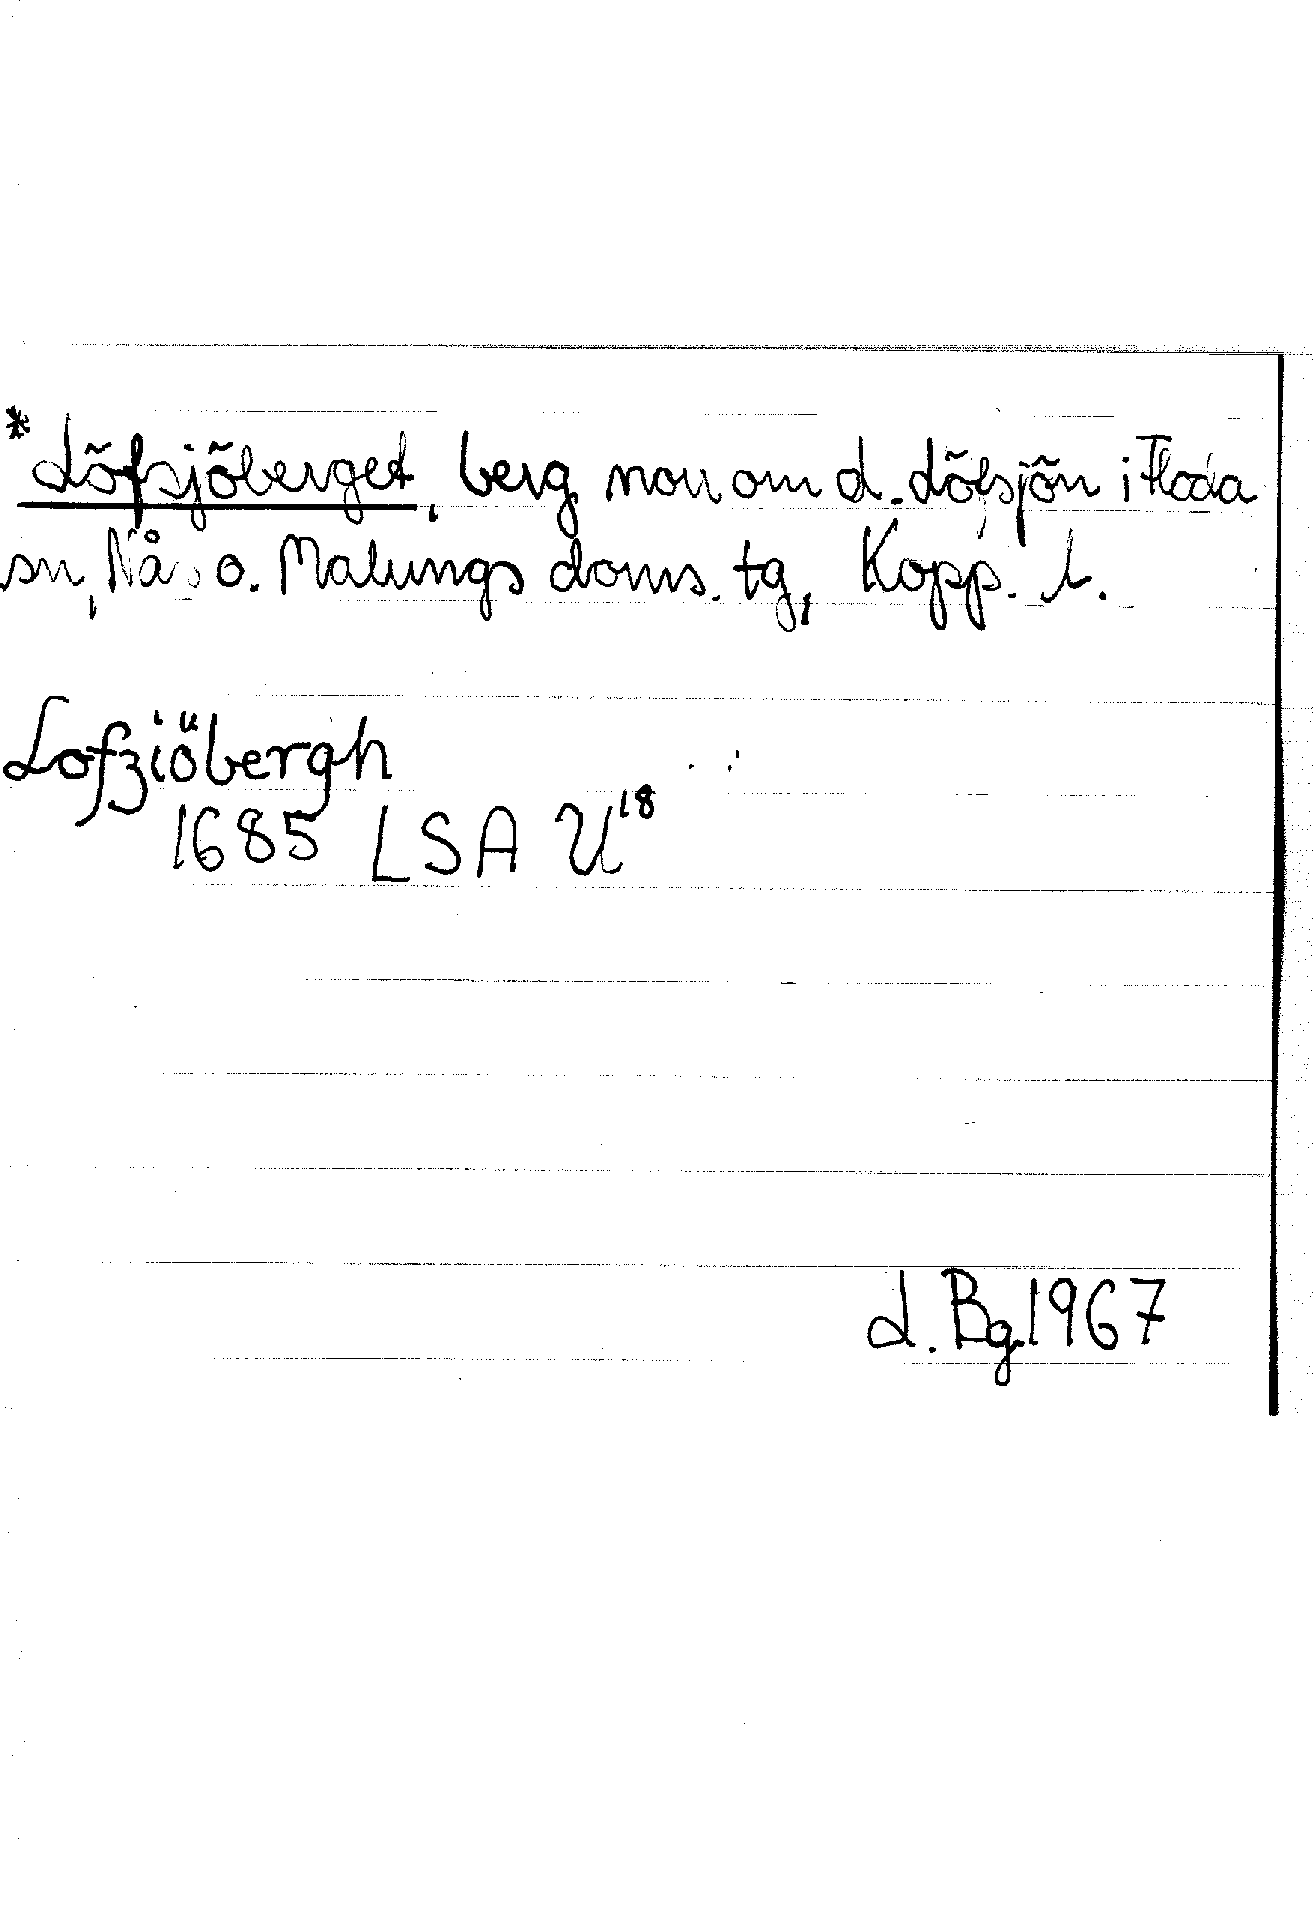 *Löfsjöberget, berg norr om L. Löfsjön i Floda
sn, Nås o. Malungs doms. tg, Kopp. l.
Lofziöbergh
1685 LSA U18
L. Bg. 1967